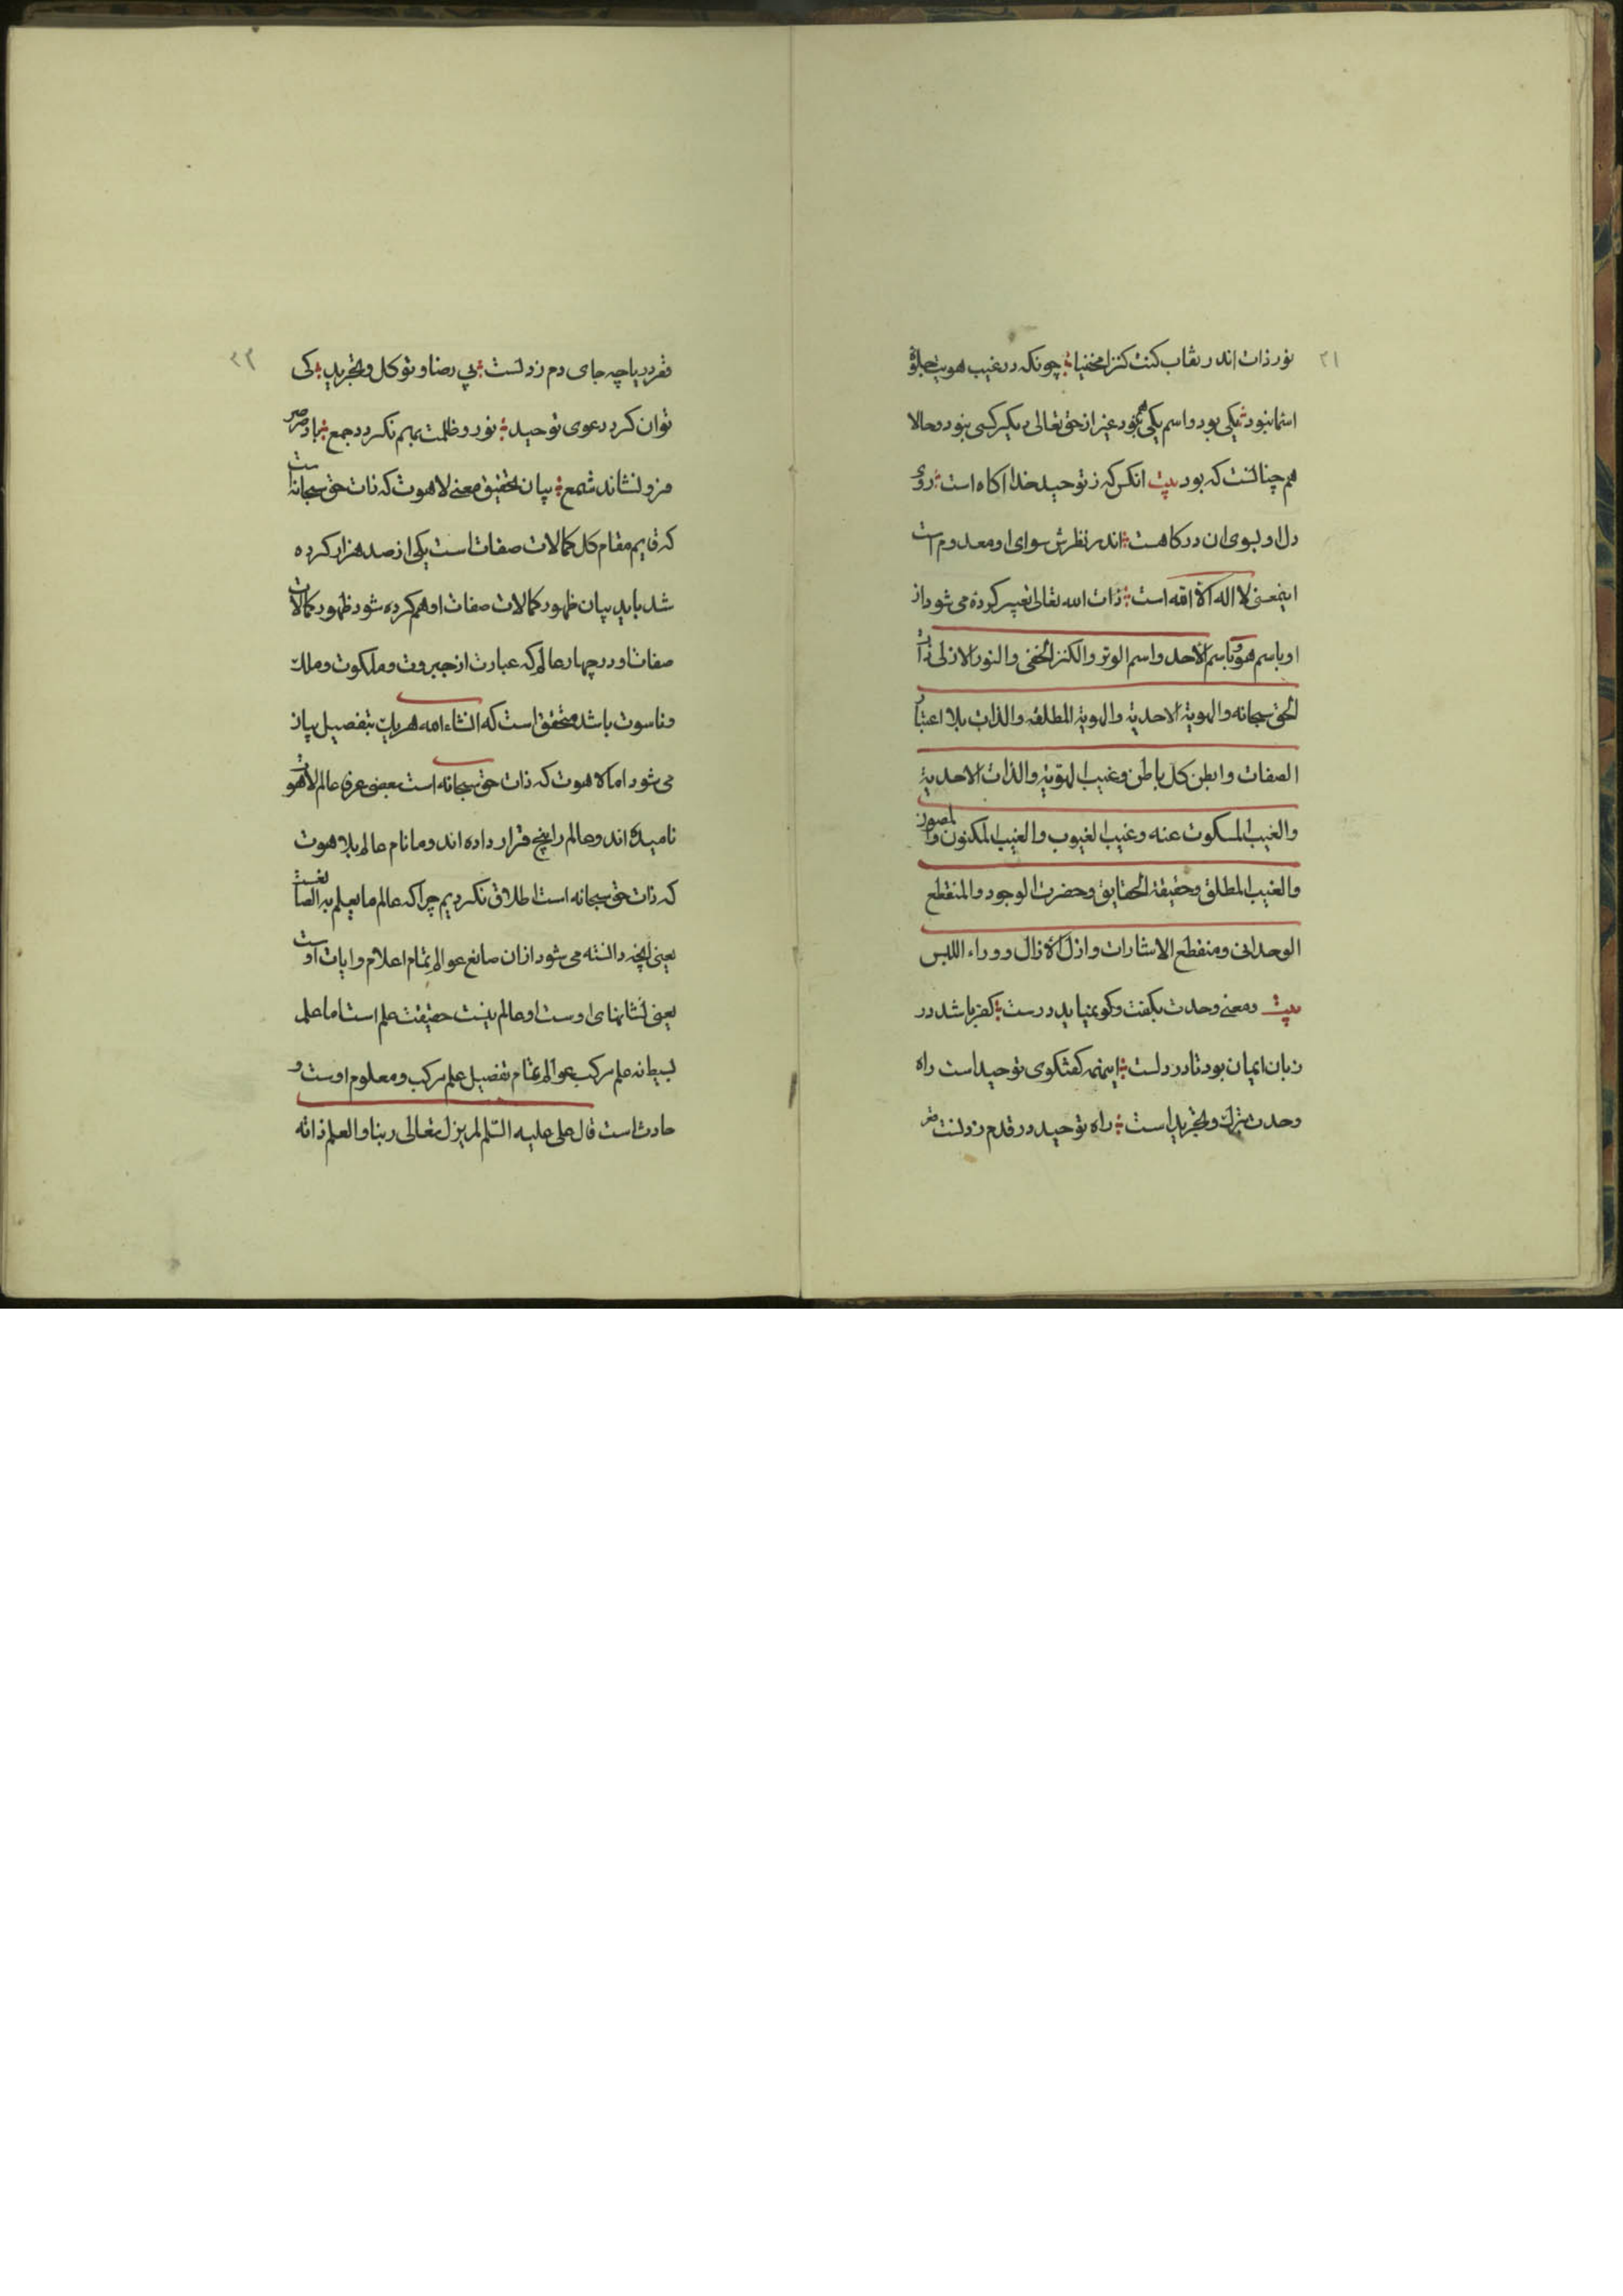 ۲۱
نور ذات اندر نقاب کنت کنزا مخفیا ؛ چونکه در غیب هویت جلوهٔ
اسما نبود ؛ یکی بود و اسم یکی هم نبود غیر از حق تعالی دیگر کسی نبود و حالا
هم چنانست که بود بیت انکس که ز توحید خدا اکاه است ؛ روی
دل او بسوی ان درکاهست ؛ اندر نظرش سوای او معدوم است
اینمعنی لا اله الا الله است ؛ ذات الله تعالی تعبیر کرده می شود از
او باسم هو و باسم الاحد و اسم الوتر و الکنز الخفی و النور الازلی ذات
الحق سبحانه و الهویة الاحدیة و الهویة المطلقه و الذات بلا اعتبار
الصفات و ابطن کل باطن و غیب الهویة و الذات الاحدیة
و الغیب المسکوت عنه و غیب الغیوب و الغیب المکنون و المصون
و الغیب المطلق و حقیقة الحقایق و حضرت الوجود و المنقطع
الوحدانی و منقطع الاشارات و ازل الازال و وراء اللبس
بیت ومعنی وحدت بکفت وکو نمیاید درست ؛ کفر باشد در
زبان ایمان بود تا در دلست ؛ اینهمه کفتکوی توحید است راه
وحدت بترک و تجرید است ؛ راه توحید در قدم زدنست
۲۲
قعر دریا چه جای دم زدنست ؛ بی رضا و توکل و تجرید ؛ کی
توان کرد دعوی توحید ؛ نور و ظلمت بهم نکردد جمع ؛ باد صرصر
فرو نشاند شمع ؛ بیان تحقیق معنی لاهوت که ذات حق سبحانه است
که قایم مقام کل کمالات صفات است یکی از صد هزار کرده
شد باید بیان ظهور کمالات صفات او هم کرده شود ظهور کمالات
صفات او در چهار عالم که عبارت از جبروت و ملکوت و ملک
و ناسوت باشد متحقق است که انشاء الله هر یک بتفصیل بیان
می شود اما لاهوت که ذات حق سبحانه است بعضی عرفا عالم لاهوت
نامیده اند و عالم را پنج قرار داده اند و ما نام عالم بلاهوت
که ذات حق سبحانه است اطلاق نکردیم چرا که عالم ما یعلم به الصانع است
یعنی انچه دانسته می شود از ان صانع عوالم تمام اعلام و ایات اوست
یعنی نشانهای اوست او عالم نیست حقیقت علم است اما علم
بسیط نه علم مرکب عوالم تمام تفصیل علم مرکب و معلوم اوست و
حادث است قال علی علیه السّلم لم یزل تعالی ربنا و العلم ذاته